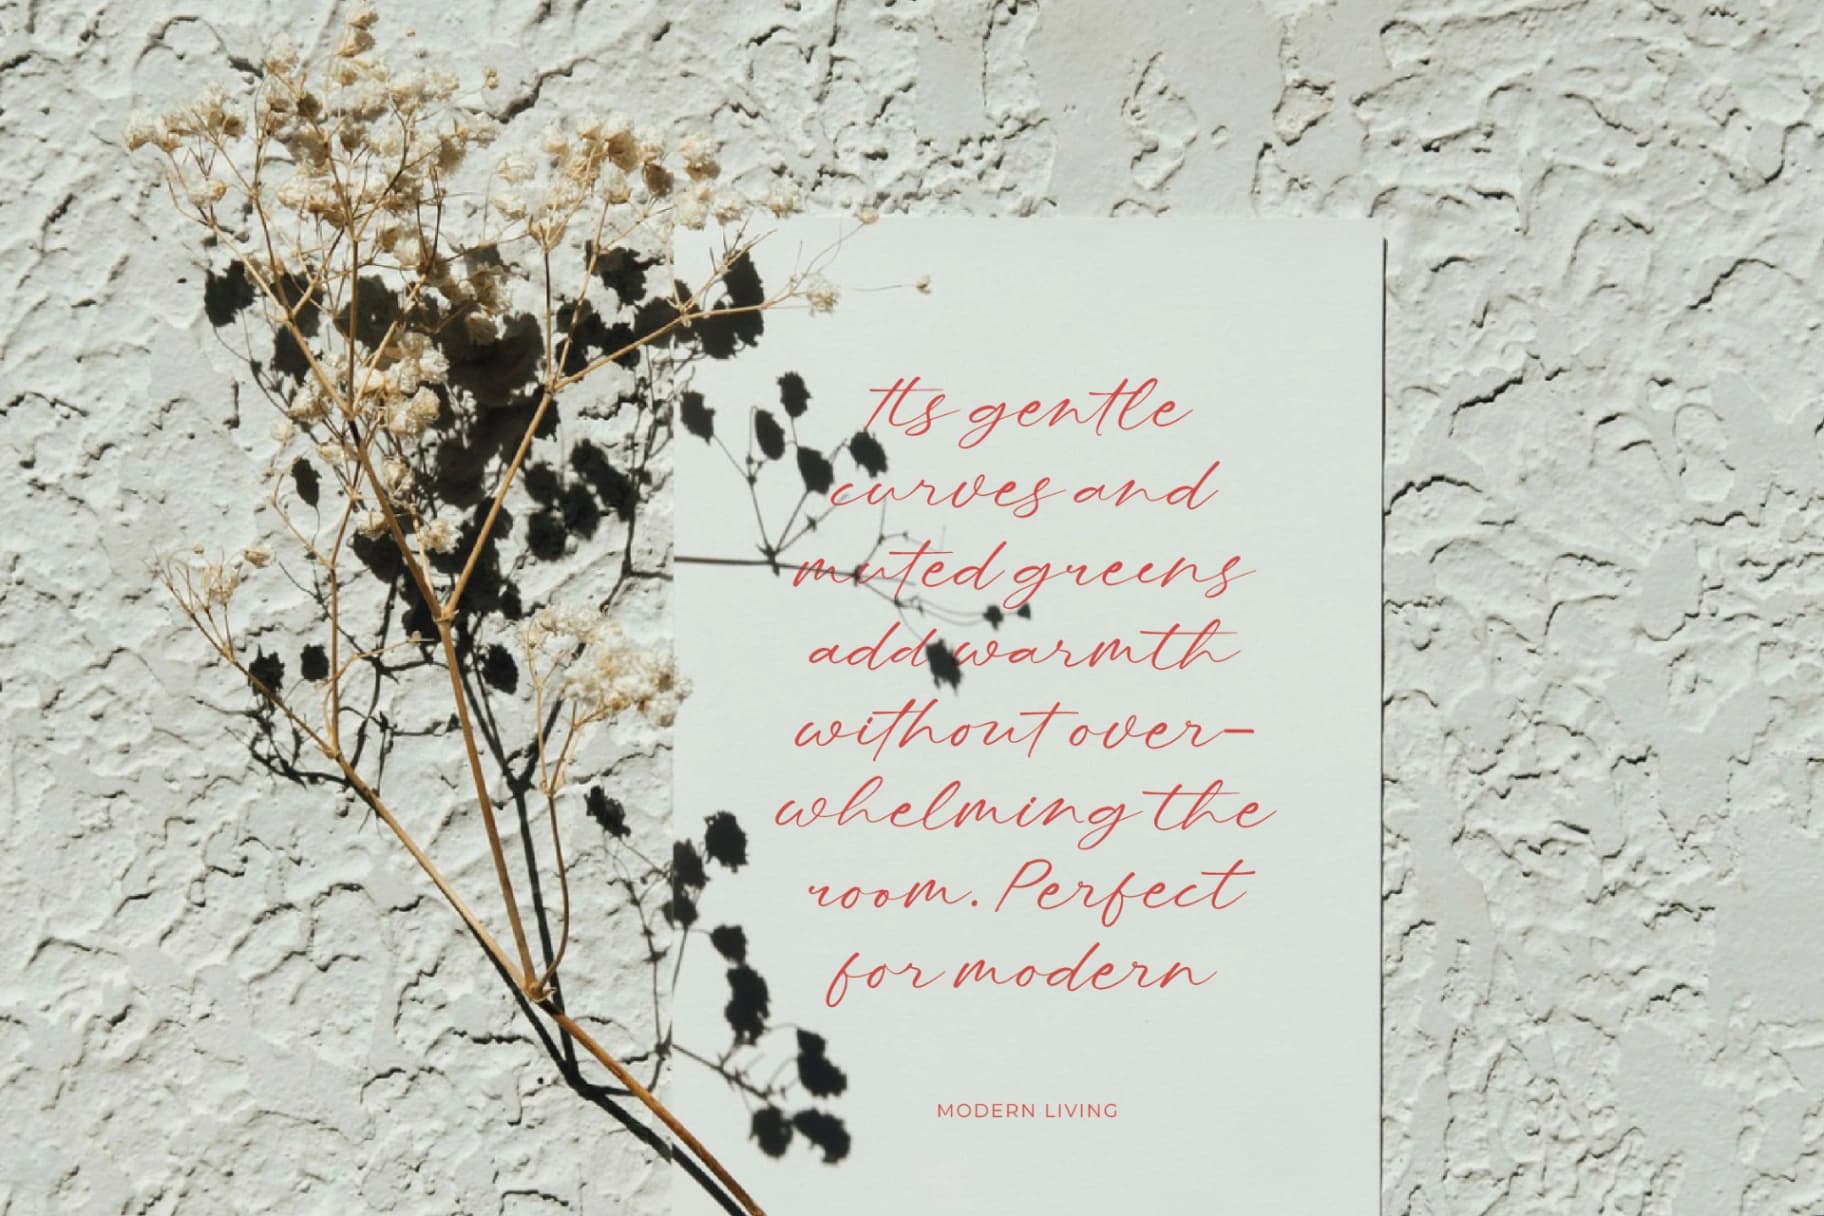 Its gentle
curves and
muted greens
add warmth
without over-
whelming the
room. Perfect
for modern
MODERN LIVING